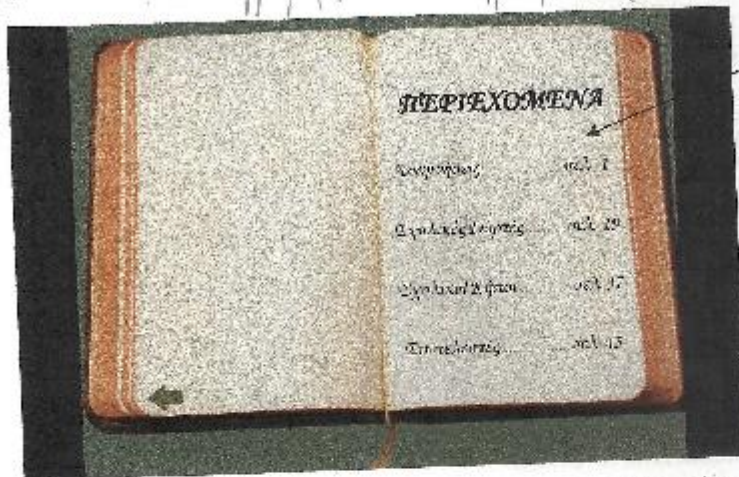 ΠΕΡΙΕΧΟΜΕΝΑ
σελ. 1
Σχολικές Γιορτές ...... σελ. 19
Σχολικοί Κήποι ...... σελ. 37
Συντελεστές ............ σελ. 45